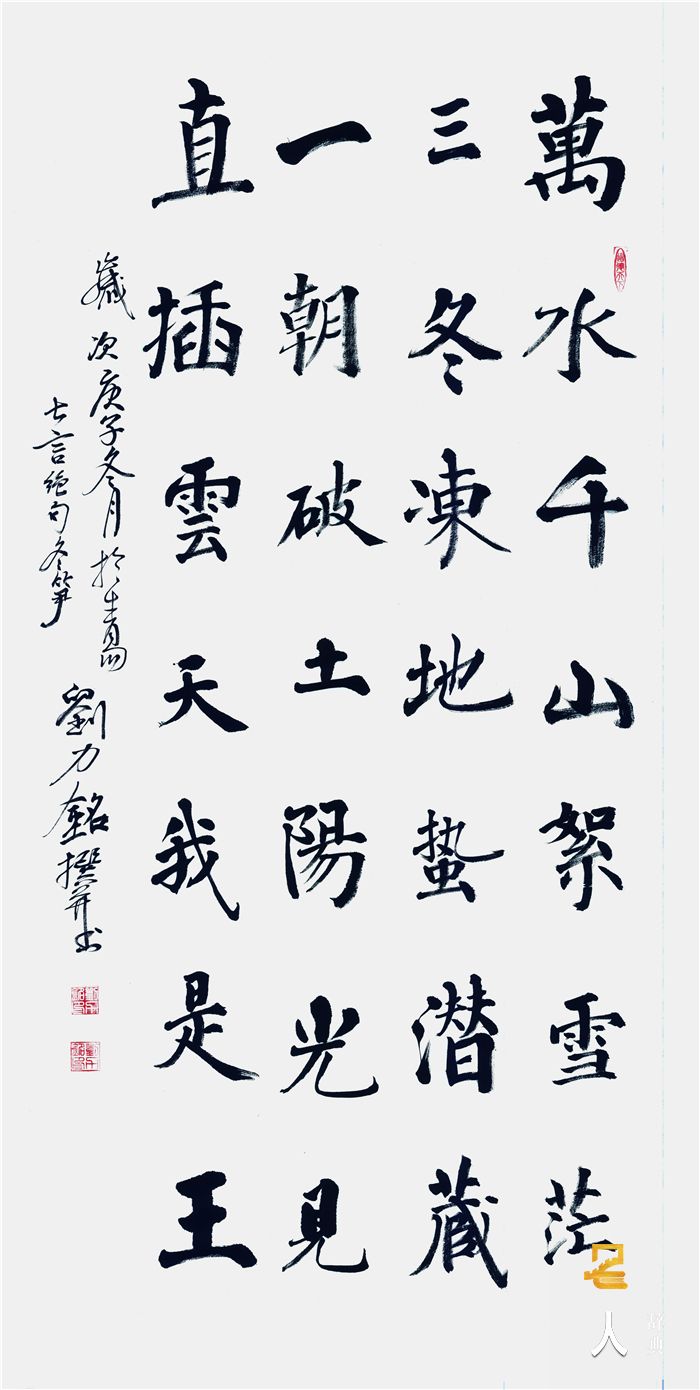 萬水千山絮雪茫
三冬凍地蛰潜藏
一朝破土陽光見
直插雲天我是王
歲次庚子冬月於青島
七言絶句冬筍
劉力銘撰并书
人
辞典